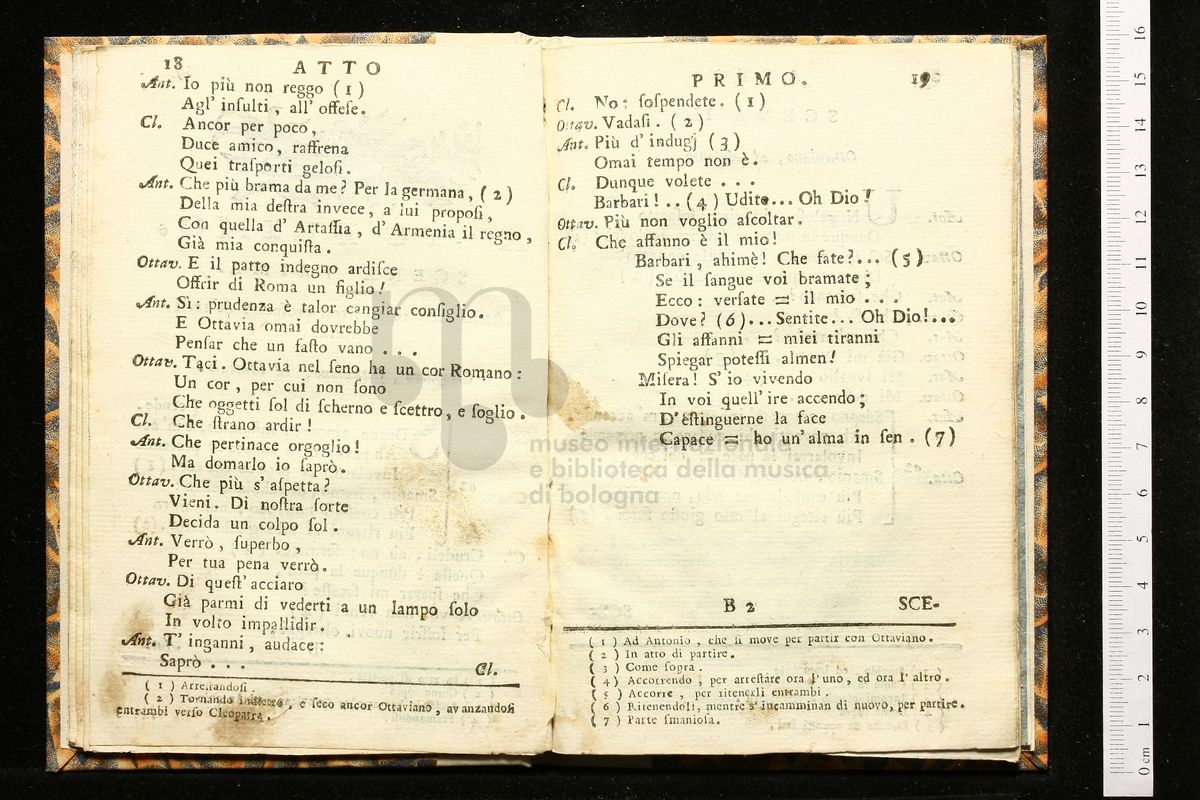 18 ATTO
Ant. Io più non reggo (1)
Agl' inſulti, all' offeſe.
Cl. Ancor per poco,
Duce amico, raffrena
Quei traſporti geloſi.
Ant. Che più brama da me? Per la germana, (2)
Della mia deſtra invece, a lui propoſi,
Con quella d' Artaſſia, d' Armenia il regno,
Già mia conquiſta.
Ottav. E il patto indegno ardiſce
Offrir di Roma un figlio!
Ant. Sì: prudenza è talor cangiar conſiglio.
E Ottavia omai dovrebbe
Penſar che un faſto vano . . .
Ottav. Taci. Ottavia nel ſeno ha un cor Romano:
Un cor, per cui non ſono
Che oggetti ſol di ſcherno e ſcettro, e ſoglio.
Cl. Che ſtrano ardir!
Ant. Che pertinace orgoglio!
Ma domarlo io ſaprò.
Ottav. Che più s' aſpetta?
Vieni. Di noſtra ſorte
Decida un colpo ſol.
Ant. Verrò, ſuperbo,
Per tua pena verrò.
Ottav. Di queſt' acciaro
Già parmi di vederti a un lampo ſolo
In volto impallidir.
Ant. T' inganni, audace:
Saprò . . .
Cl.
(1) Arreſtandoſi.
(2) Tornando indietro, e ſeco ancor Ottaviano, avanzandoſi
entrambi verſo Cleopatra.
PRIMO. 19
Cl. No: ſoſpendete. (1)
Ottav. Vadaſi. (2)
Ant. Più d' indugj (3)
Omai tempo non è.
Cl. Dunque volete . . .
Barbari! . . (4) Udite... Oh Dio!
Ottav. Più non voglio aſcoltar.
Cl. Che affanno è il mio!
Barbari, ahimè! Che fate?... (5)
Se il ſangue voi bramate;
Ecco: verſate = il mio . . . .
Dove? (6)... Sentite... Oh Dio!...
Gli affanni = miei tiranni
Spiegar poteſſi almen!
Miſera! S' io vivendo
In voi quell' ire accendo;
D' eſtinguerne la face
Capace = ho un' alma in ſen. (7)
B 2 SCE-
(1) Ad Antonio, che ſi move per partir con Ottaviano.
(2) In atto di partire.
(3) Come ſopra.
(4) Accorrendo, per arreſtare ora l' uno, ed ora l' altro.
(5) Accorre, per ritenerli entrambi.
(6) Ritenendoli, mentre s' incamminan di nuovo, per partire.
(7) Parte ſmanioſa.
museo internazionale
e biblioteca della musica
di bologna
0 cm 1 2 3 4 5 6 7 8 9 10 11 12 13 14 15 16